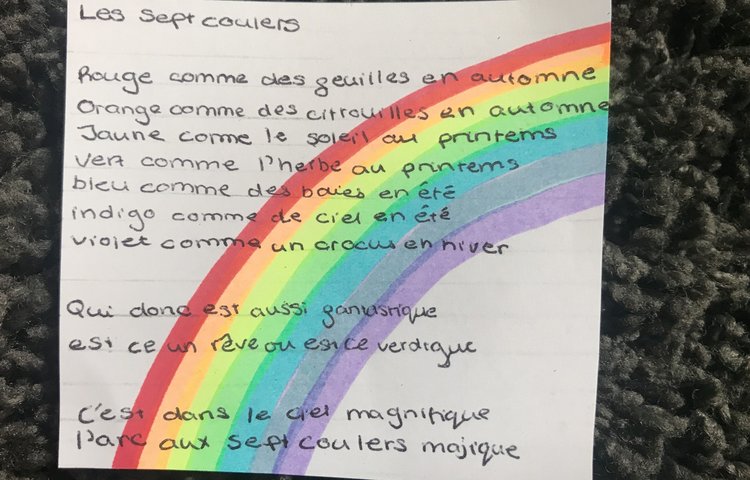 Les sept coulers
Rouge comme des geuilles en automne
Orange comme des citrouilles en automne
Jaune come le soleil au printems
vert comme l'herbe au printems
bleu comme des baies en été
indigo comme de ciel en été
violet comme un crocus en hiver
Qui donc est aussi gantastique
est ce un rêve ou est ce verdique
C'est dans le ciel magnifique
l'arc aux sept coulers majique